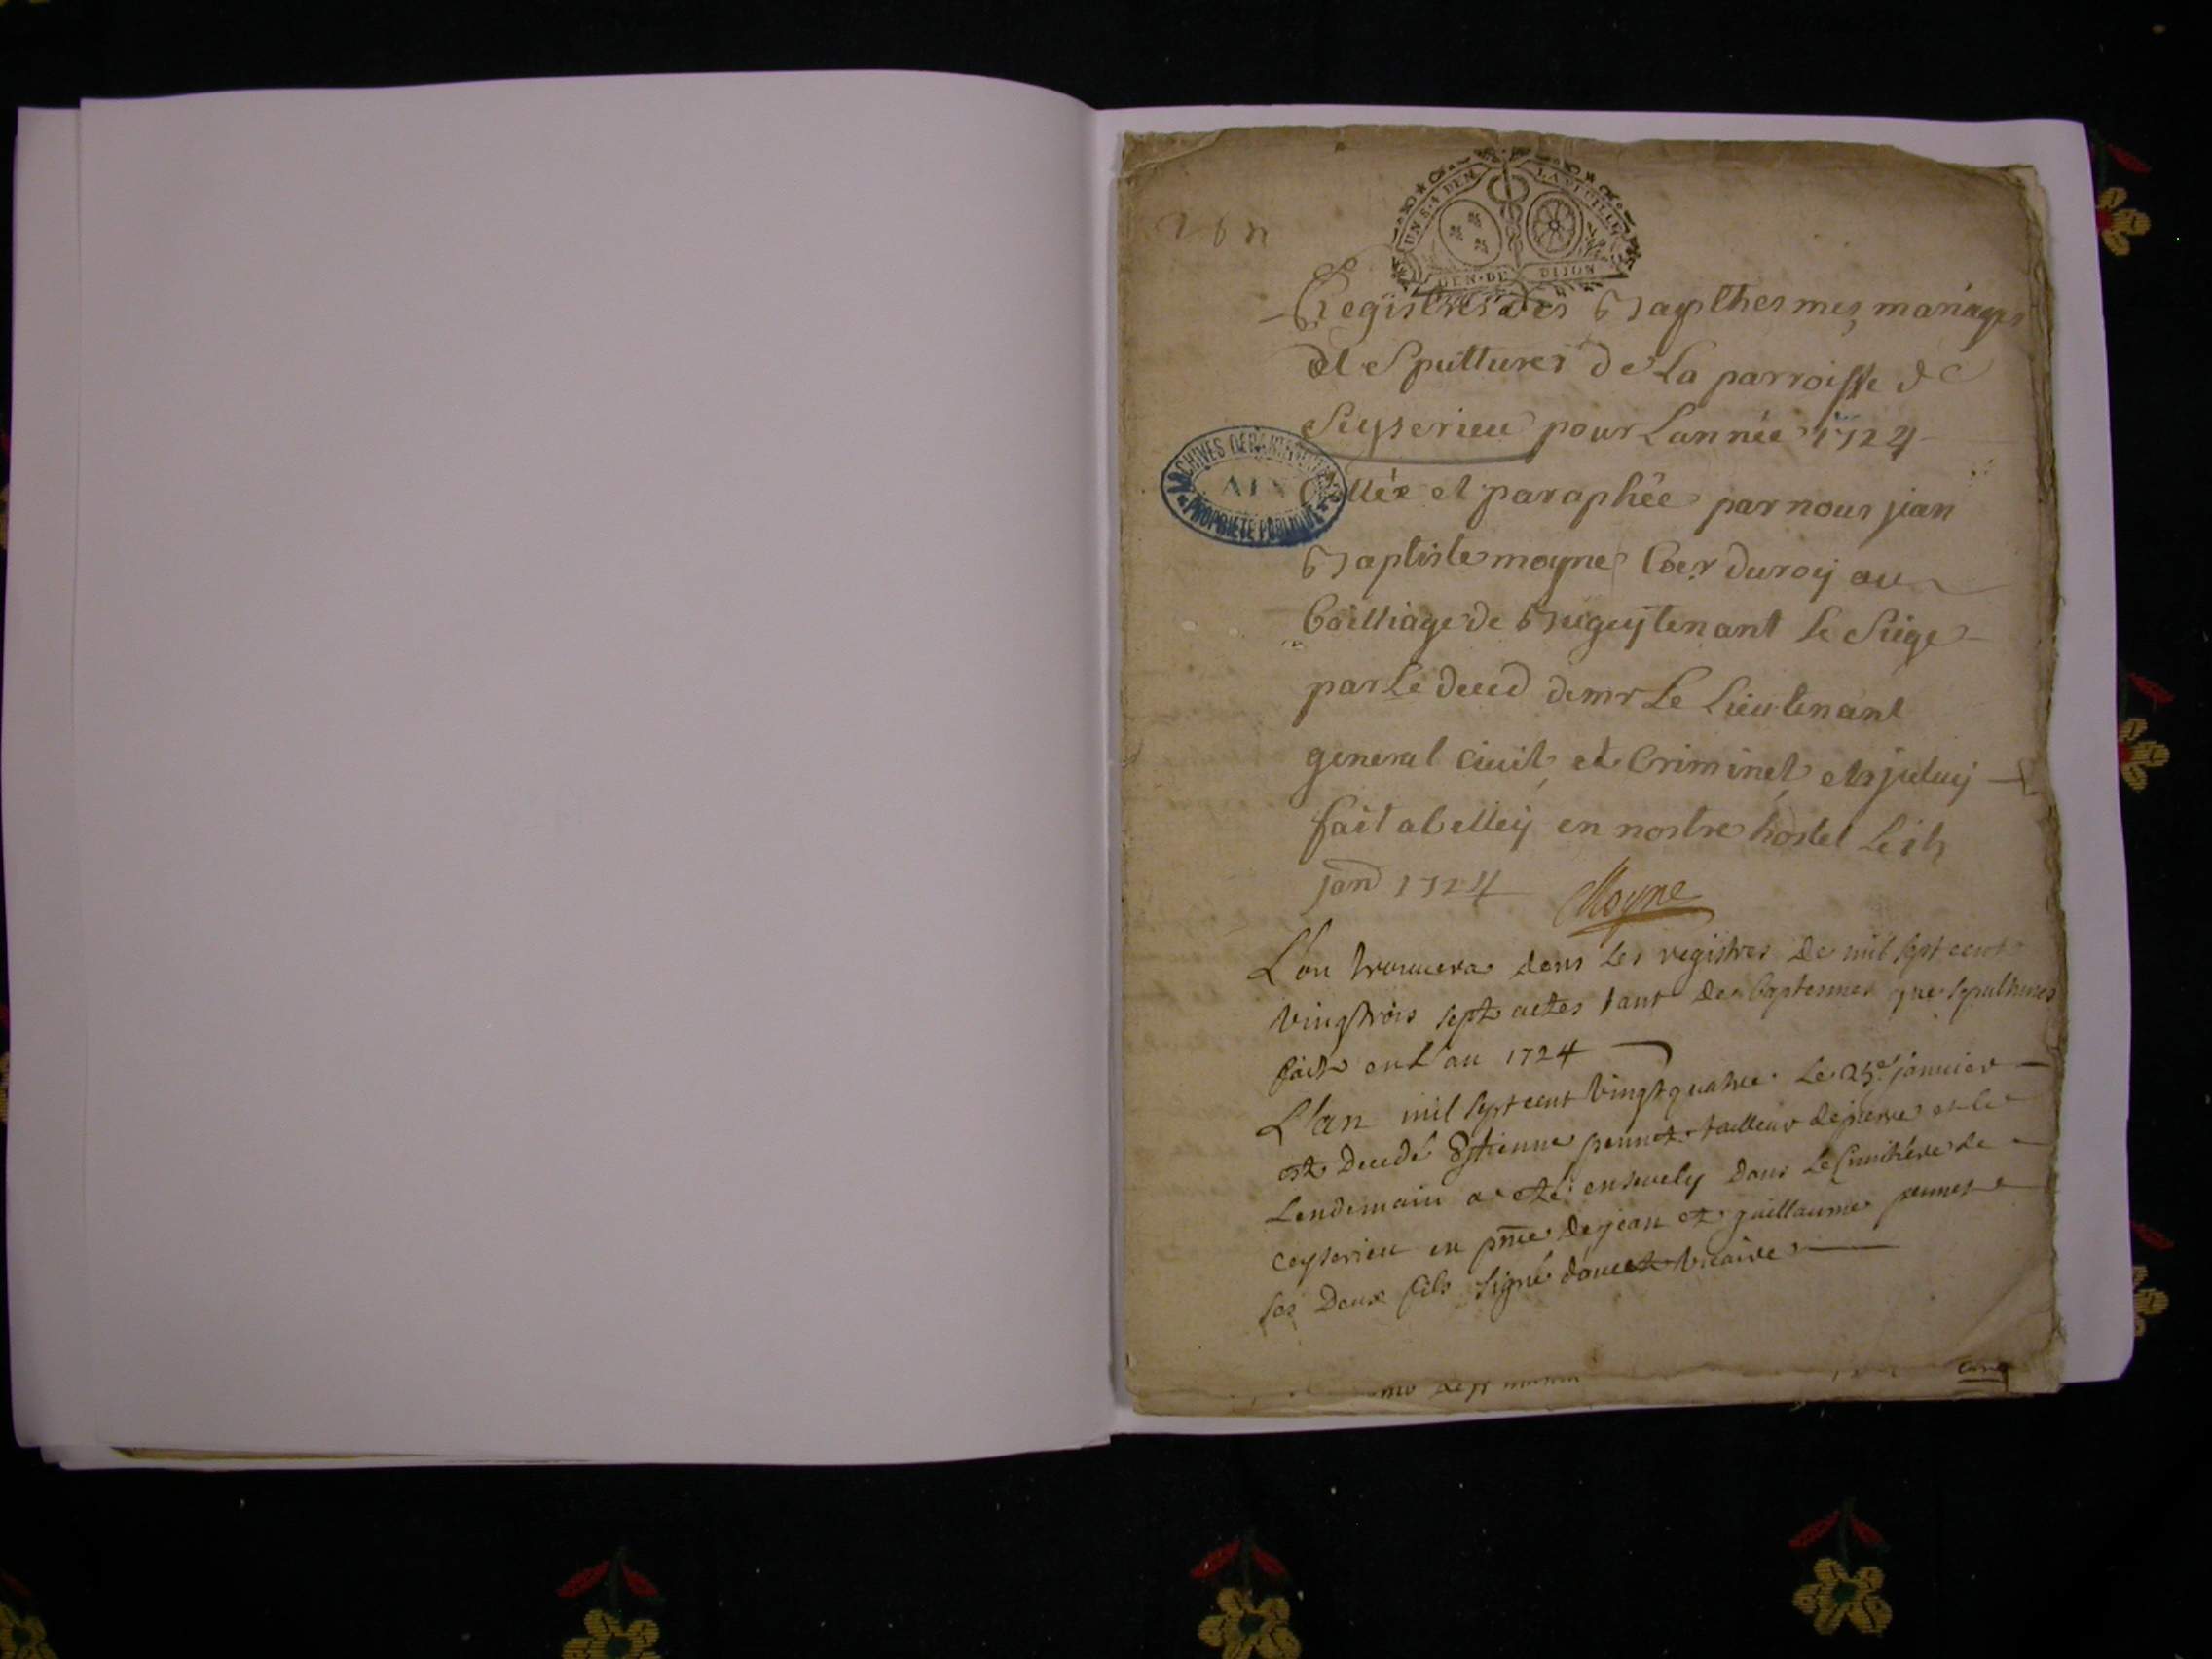 UN S. 4 DEN. LA FEUILLE
GEN. DE DIJON
Registres des Bapthesmes, mariages
et Spulltures de La parroisse de
Seyserieu pour Lannée 1724
Cottée et paraphée par nous jean
Baptiste moyne Coer du roy au
Bailliage de Bugey tenant le Siege
par Le deced de mr Le Lieutenant
general Civil et Criminel
fait a belley en nostre hostel Le
janv 1724 Moyne
ARCHIVES DEPARTEMENTALES
AIN
PROPRIETE PUBLIQUE
L'on trouuera dans Les registres de mil sept cent
vingt trois sept actes tant de baptesmes que sepultures
faits en L'an 1724
L'an mil sept cent vingt quatre Le 25e januier
est decedé Estienne pennet tailleur de pierre et le
Lendemain a eté enseuely dans Le Cimitiére de
ceyserieu en pnce de jean et guillaume pennet
ses deux fils signé vicaire